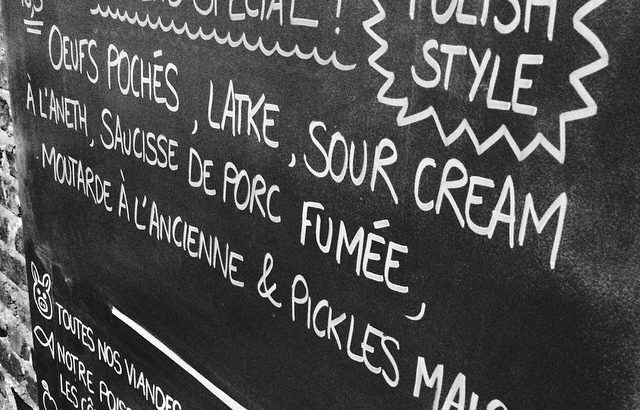 SPECIAL !
POLISH
STYLE
OEUFS POCHÉS , LATKE , SOUR CREAM
À L'ANETH, SAUCISSE DE PORC FUMÉE,
MOUTARDE À L'ANCIENNE & PICKLES
TOUTES NOS VIANDES
NOTRE
LES